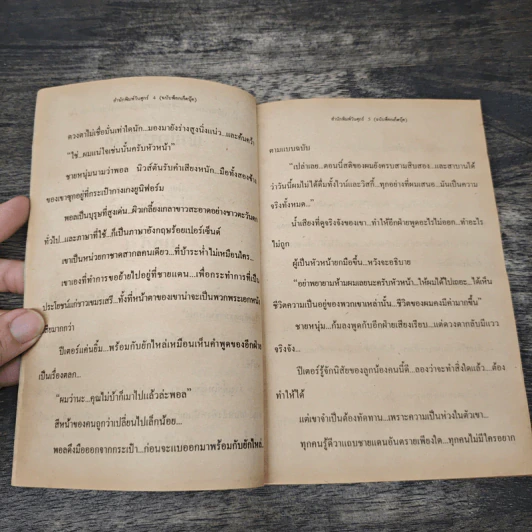 สำนักพิมพ์วันศุกร์ 4 (ฉบับพ็อกเก็ตบุ๊ค)
ดวงตาไม่เชื่อมั่นเท่าใดนัก...มองมายังร่างสูงนิ่งแน่ว...และค้นคว้า
"ใช่...ผมแน่ใจเช่นนั้นครับหัวหน้า"
ชายหนุ่มนามว่าพอล นิวส์ตันรับคำเสียงหนัก...มือทั้งสองข้าง
ของเขาซุกอยู่ที่กระเป๋ากางเกงยูนิฟอร์ม
พอลเป็นบุรุษที่สูงเด่น...ผิวเกลี้ยงเกลาขาวสะอาดอย่างชาวตะวันตก
ทั่วไป...และภาษาที่ใช้...ก็เป็นภาษาอังกฤษร้อยเปอร์เซ็นต์
เขาเป็นหน่วยกาชาดสากลคนเดียว...ที่บ้าระห่ำไม่เหมือนใคร...
เขาเองที่ทำการขอย้ายไปอยู่ที่ชายแดน...เพื่อกระทำการที่เป็น
ประโยชน์แก่ชาวเขมรเสรี...ทั้งที่หน้าตาของเขาน่าจะเป็นพวกพระเอกหนัง
เสียมากกว่า
ปีเตอร์แค่นยิ้ม...พร้อมกับยักไหล่เหมือนเห็นคำพูดของอีกฝ่าย
เป็นเรื่องตลก...
"ผมว่านะ...คุณไม่บ้าก็เมาไปแล้วล่ะพอล"
สีหน้าของคนถูกว่าเปลี่ยนไปเล็กน้อย...
พอลดึงมือออกจากกระเป๋า...ก่อนจะแบออกมาพร้อมกับยักไหล่...
สำนักพิมพ์วันศุกร์ 5 (ฉบับพ็อกเก็ตบุ๊ค)
ตามแบบฉบับ
"เปล่าเลย...ตอนนี้สติของผมยังครบสามสิบสอง...และสาบานได้
ว่าวันนี้ผมไม่ได้ดื่มทั้งไวน์และวิสกี้...ทุกอย่างที่ผมเสนอ...มันเป็นความ
จริงทั้งหมด..."
น้ำเสียงที่ดูจริงจังของเขา...ทำให้อีกฝ่ายพูดอะไรไม่ออก...ทำอะไร
ไม่ถูก
ผู้เป็นหัวหน้ายกมือขึ้น...หวังจะอธิบาย
"อย่าพยายามห้ามผมเลยนะครับหัวหน้า...ให้ผมได้ไปเถอะ...ได้เห็น
ชีวิตความเป็นอยู่ของพวกเขาเหล่านั้น...ชีวิตของผมคงมีค่ามากขึ้น"
ชายหนุ่ม...ก้มลงพูดกับอีกฝ่ายเสียงเรียบ...แต่ดวงตากลับมีแวว
จริงจัง...
ปีเตอร์รู้จักนิสัยของลูกน้องคนนี้ดี...ลองว่าจะทำสิ่งใดแล้ว...ต้อง
ทำให้ได้
แต่เขาจำเป็นต้องทัดทาน...เพราะความเป็นห่วงในตัวเขา...
ทุกคนรู้ดีว่าแถบชายแดนอันตรายเพียงใด...ทุกคนไม่มีใครอยาก